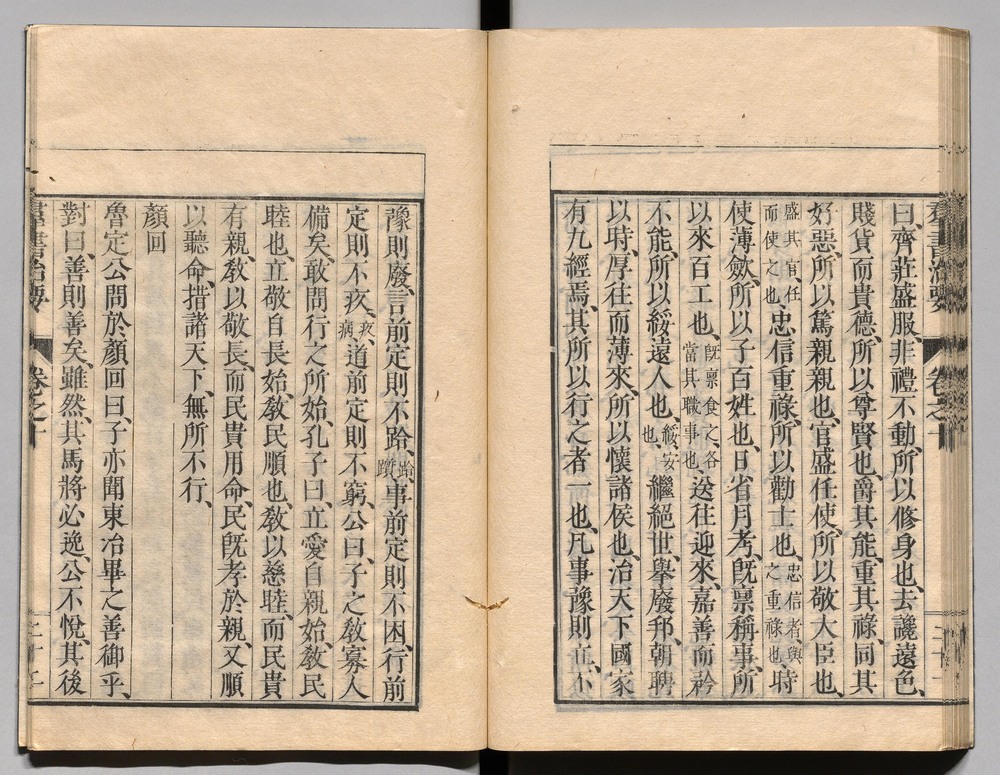 曰、齊莊盛服、非禮不動、所以修身也、去讒遠色、
賤貨而貴德、所以尊賢也、爵其能、重其祿、同其
好惡、所以篤親親也、官盛任使、所以敬大臣也、
盛其官任而使之也、忠信重祿、所以勸士也、忠信者、與之重祿也、時
使薄斂、所以子百姓也、日省月考、旣稟稱事、所
以來百工也、旣稟食之、各當其職事也、送往迎來、嘉善而矜
不能、所以綏遠人也、綏、安也、繼絕世、舉廢邦、朝聘
以時、厚往而薄來、所以懷諸侯也、治天下國家
有九經焉、其所以行之者一也、凡事豫則立、不
豫則廢、言前定則不跲、跲、躓、事前定則不困、行前
定則不疚、疚、病、道前定則不窮、公曰、子之敎寡人
備矣、敢問行之所始、孔子曰、立愛自親始、敎民
睦也、立敬自長始、敎民順也、敎以慈睦、而民貴
有親、敎以敬長、而民貴用命、民旣孝於親、又順
以聽命、措諸天下、無所不行、
顏回
魯定公問於顏回曰、子亦聞東冶畢之善御乎、
對曰、善則善矣、雖然、其馬將必逸、公不悅、其後
群書治要
卷之十